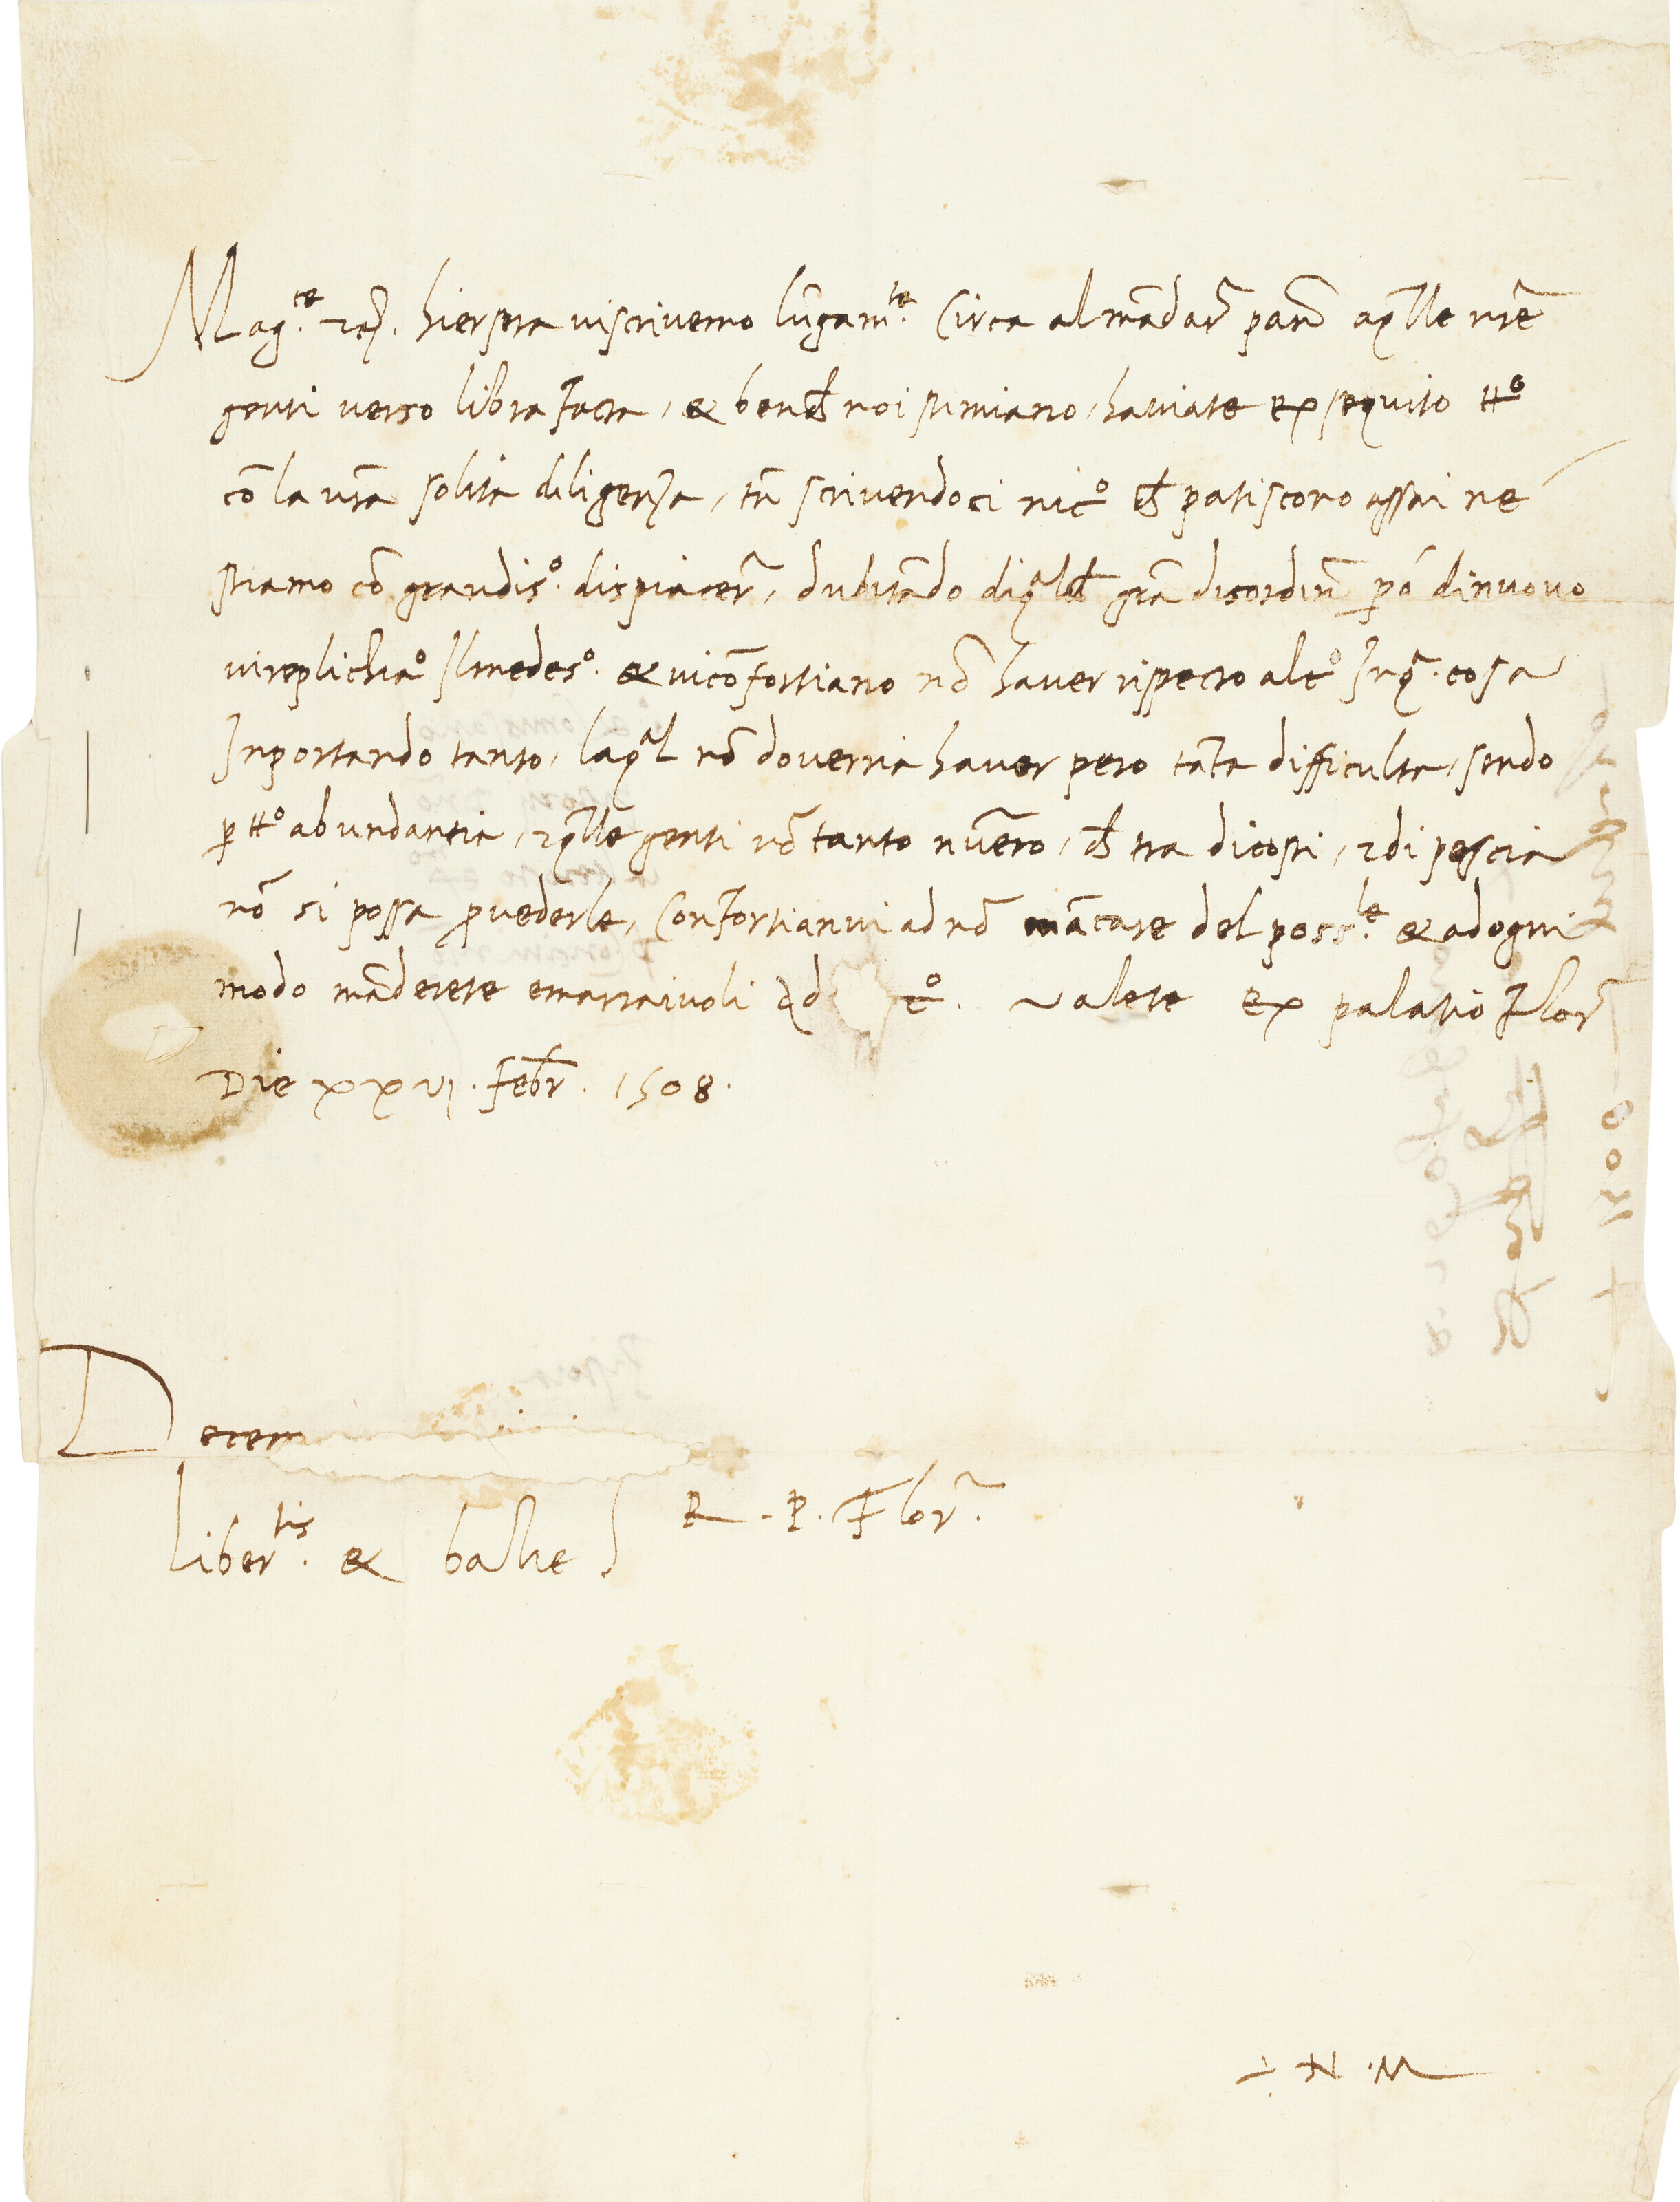 Mag.ce &c. hiersera viscrivemo lũgam.te Circa al mãdar̃ pane aq̃lle nr̃e
genti verso librafacta, & benchḗ noi stimiano, haviate exsequito tt.o
cõ la vr̃a solita diligenza, tñ scrivendoci nic.o chḗ patiscono assai ne
stiamo cõ grandis.o dispiacer̃, dubitãdo diq.alchḗ grã disordin̄ ꝑó dinuovo
vireplichia.o Ilmedes.o & viconfortiano nõ haver rispecto alc.o Inq.a cosa
Inportando tanto, laq.al nõ doverria haver pero tãta difficulta, sendo
ꝑ tt.o abundantia, & q̃lle genti nõ tanto nũero, chḗ tra dicosti, & di pescia
nõ si possa ꝓvederle, Confortianvi ad nõ mãcare del poss.le & adogni
modo mãderete
valete ex palatio Flor̃
Die xxvi. Febr̃. 1508.
Decem
liber.tis & balie R. P. Flor̃.
N. M